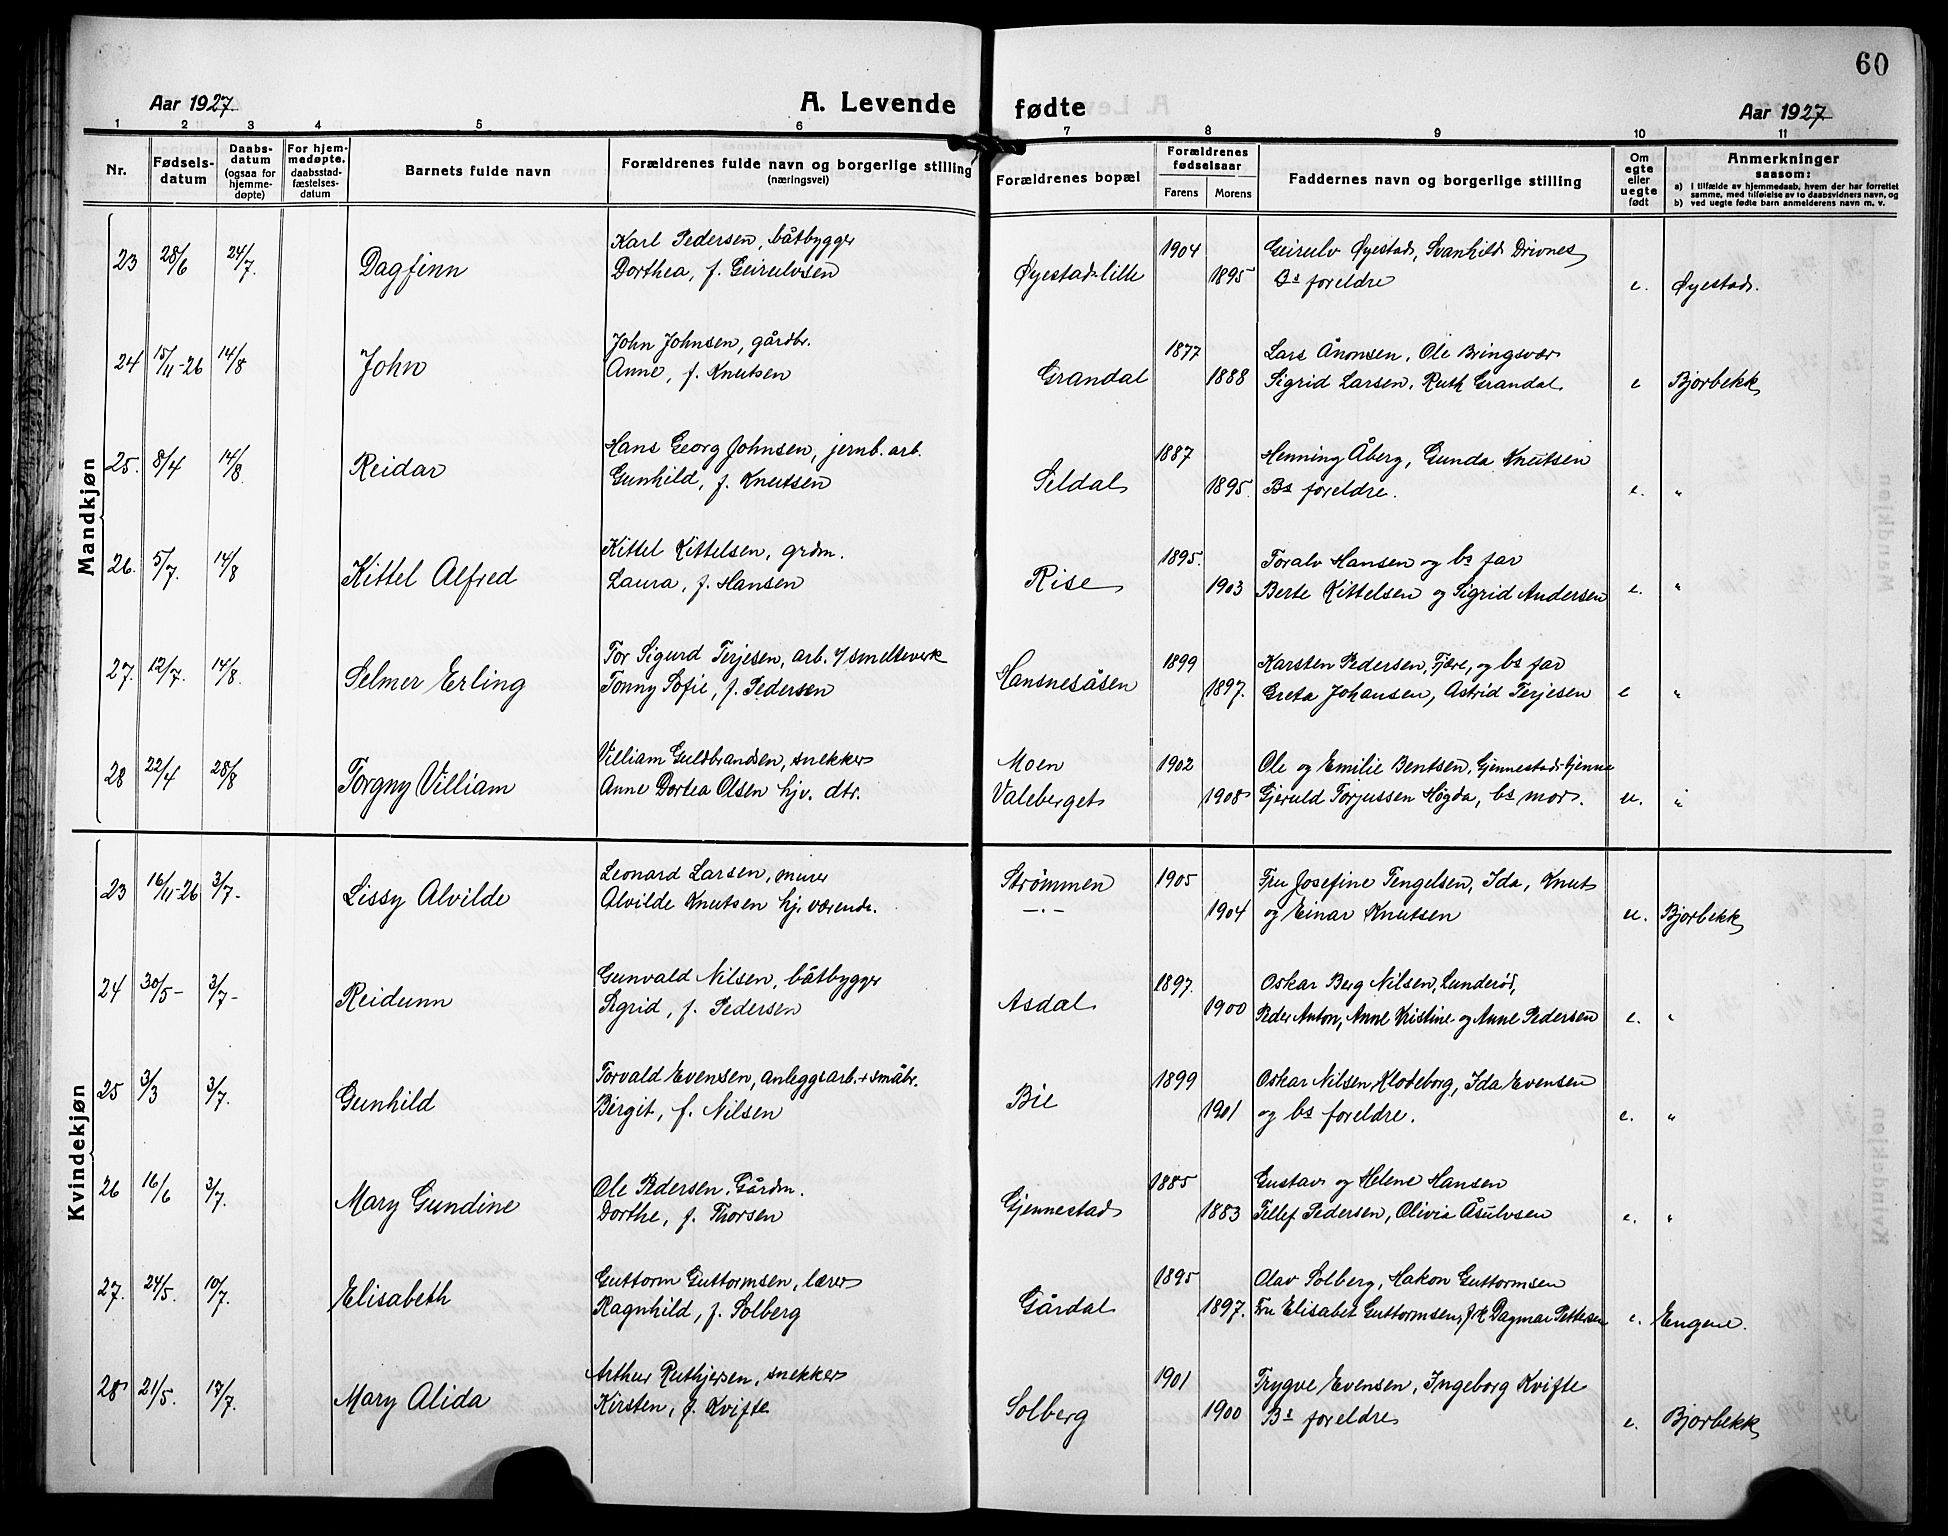 60
Aar 1927.
A. Levende
fødte
Aar 1927
1 2 3 4 5 6 7 8 9 10 11
Nr.
Fødsels-
datum
Daabs-
datum
(ogsaa for
hjemme-
døpte)
For hjem-
medøpte,
daabsstad-
fæstelses-
datum
Barnets fulde navn
Forældrenes fulde navn og borgerlige stilling
(næringsvei)
Forældrenes bopæl
Forældrenes
fødselsaar
Farens Morens
Faddernes navn og borgerlige stilling
Om
egte
eller
uegte
født
Anmerkninger
saasom:
a) i tilfælde av hjemmedaab, hvem der har forrettet
samme, med tilføielse av to daabsvidners navn, og
b) ved uegte fødte barn anmelderens navn m. v.
Mandkjøn
23 28/6 24/7. Dagfinn Karl Pedersen, båtbygger 1904 Geirulv Øyestad, Svanhild Drivnes
Dorthea, f. Geirulvsen Øyestad-lille 1895 Bs foreldre e. Øyestad.
24 15/11-26 14/8 John John Johnsen, gårdbr. 1877 Lars Ånonsen, Ole Bringsvær
Anne, f. Knutsen Grandal 1888 Sigrid Larsen, Ruth Grandal. e Bjorbekk
25. 8/4 14/8. Reidar Hans Georg Johnsen, jernb. arb. 1887 Henning Åberg, Gunda Knutsen
Gunhild, f. Knutsen Seldal 1895. Bs foreldre. e. "
26. 5/7. 14/8 Kittel Alfred Kittel Kittelsen, grdm. 1895. Toralv Hansen og bs far
Laura, f. Hansen Rise 1903 Berte Kittelsen og Sigrid Andersen e. "
27. 12/7. 14/8. Selmer Erling Tor Sigurd Terjesen, arb. v/ smelteverk 1899 Karsten Pedersen, Fjære, og bs far
Tonny Sofie, f. Pedersen Hansnesåsen 1897. Greta Johansen, Astrid Terjesen e "
28 22/4 28/8 Torgny Villiam Villiam Guldbrandsen, snekker Moen 1902 Ole og Emilie Bentsen, Gjennestad-Gjenne
Anne Dortea Olsen hjv. dtr. Valeberget 1908 Gjeruld Torjussen Høgda, bs mor. u. "
Kvindekjøn
23 16/11-26 3/7- Lissy Alvilde Leonard Larsen, murer Strømmen 1905 Fru Josefine Tengelsen, Ida, Knut
Alvilde Knutsen hj. værende. -"- 1904 og Einar Knutsen u. Bjorbekk
24 30/5- 3/7- Reidunn Gunvald Nilsen, båtbygger 1897. Oskar Berg Nilsen, Lunderød,
Sigrid, f. Pedersen Asdal 1900 Peder Anton, Anne Kristine og Anne Pedersen e. "
25 3/3 3/7. Gunhild Torvald Evensen, anleggsarb. + småbr. 1899 Oskar Nilsen, Klodeborg, Ida Evensen
Birgit, f. Nilsen Bie 1901 og bs foreldre. e. "
26 16/6 3/7. Mary Gundine Ole Pedersen, Gårdm. 1885 Gustav og Helene Hansen
Dorthe, f. Thorsen Gjennestad 1883 Tellef Pedersen, Olivia Åsulvsen e. "
27. 24/5. 10/7. Elisabeth Guttorm Guttormsen, lærer 1895 Olav Solberg, Hakon Guttormsen
Ragnhild, f. Solberg Gårdal 1897. Fru Elisabet Guttormsen, frk Dagmar Pettersen e. Engene.
28 21/5. 17/7. Mary Alida Arthur Ruthjersen, snekker 1901 Trygve Evensen, Ingeborg Kvifte
Kirsten, f. Kvifte Solberg 1900 Bs foreldre e. Bjorbekk